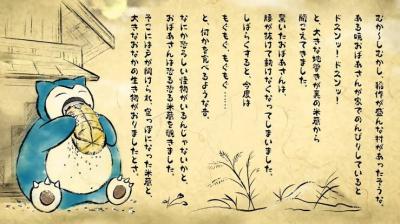 むか〜しむかし、稲作が盛んな村があったそうな。
ある晩おばあさんが家でのんびりしていると
ドスンッ！ドスンッ！
と、大きな地響きが裏の米蔵から
聞こえてきました。
驚いたおばあさんは、
腰が抜けて動けなくなってしまいました。
しばらくすると、今度は
もぐもぐ、もぐもぐ……
と、何かを食べるような音。
なにか恐ろしい怪物がいるんじゃないかと、
おばあさんは恐る恐る米蔵を覗きました。
そこには戸が開けられ、空っぽになった米蔵と、
大きなおなかの生き物がおりましたとさ。